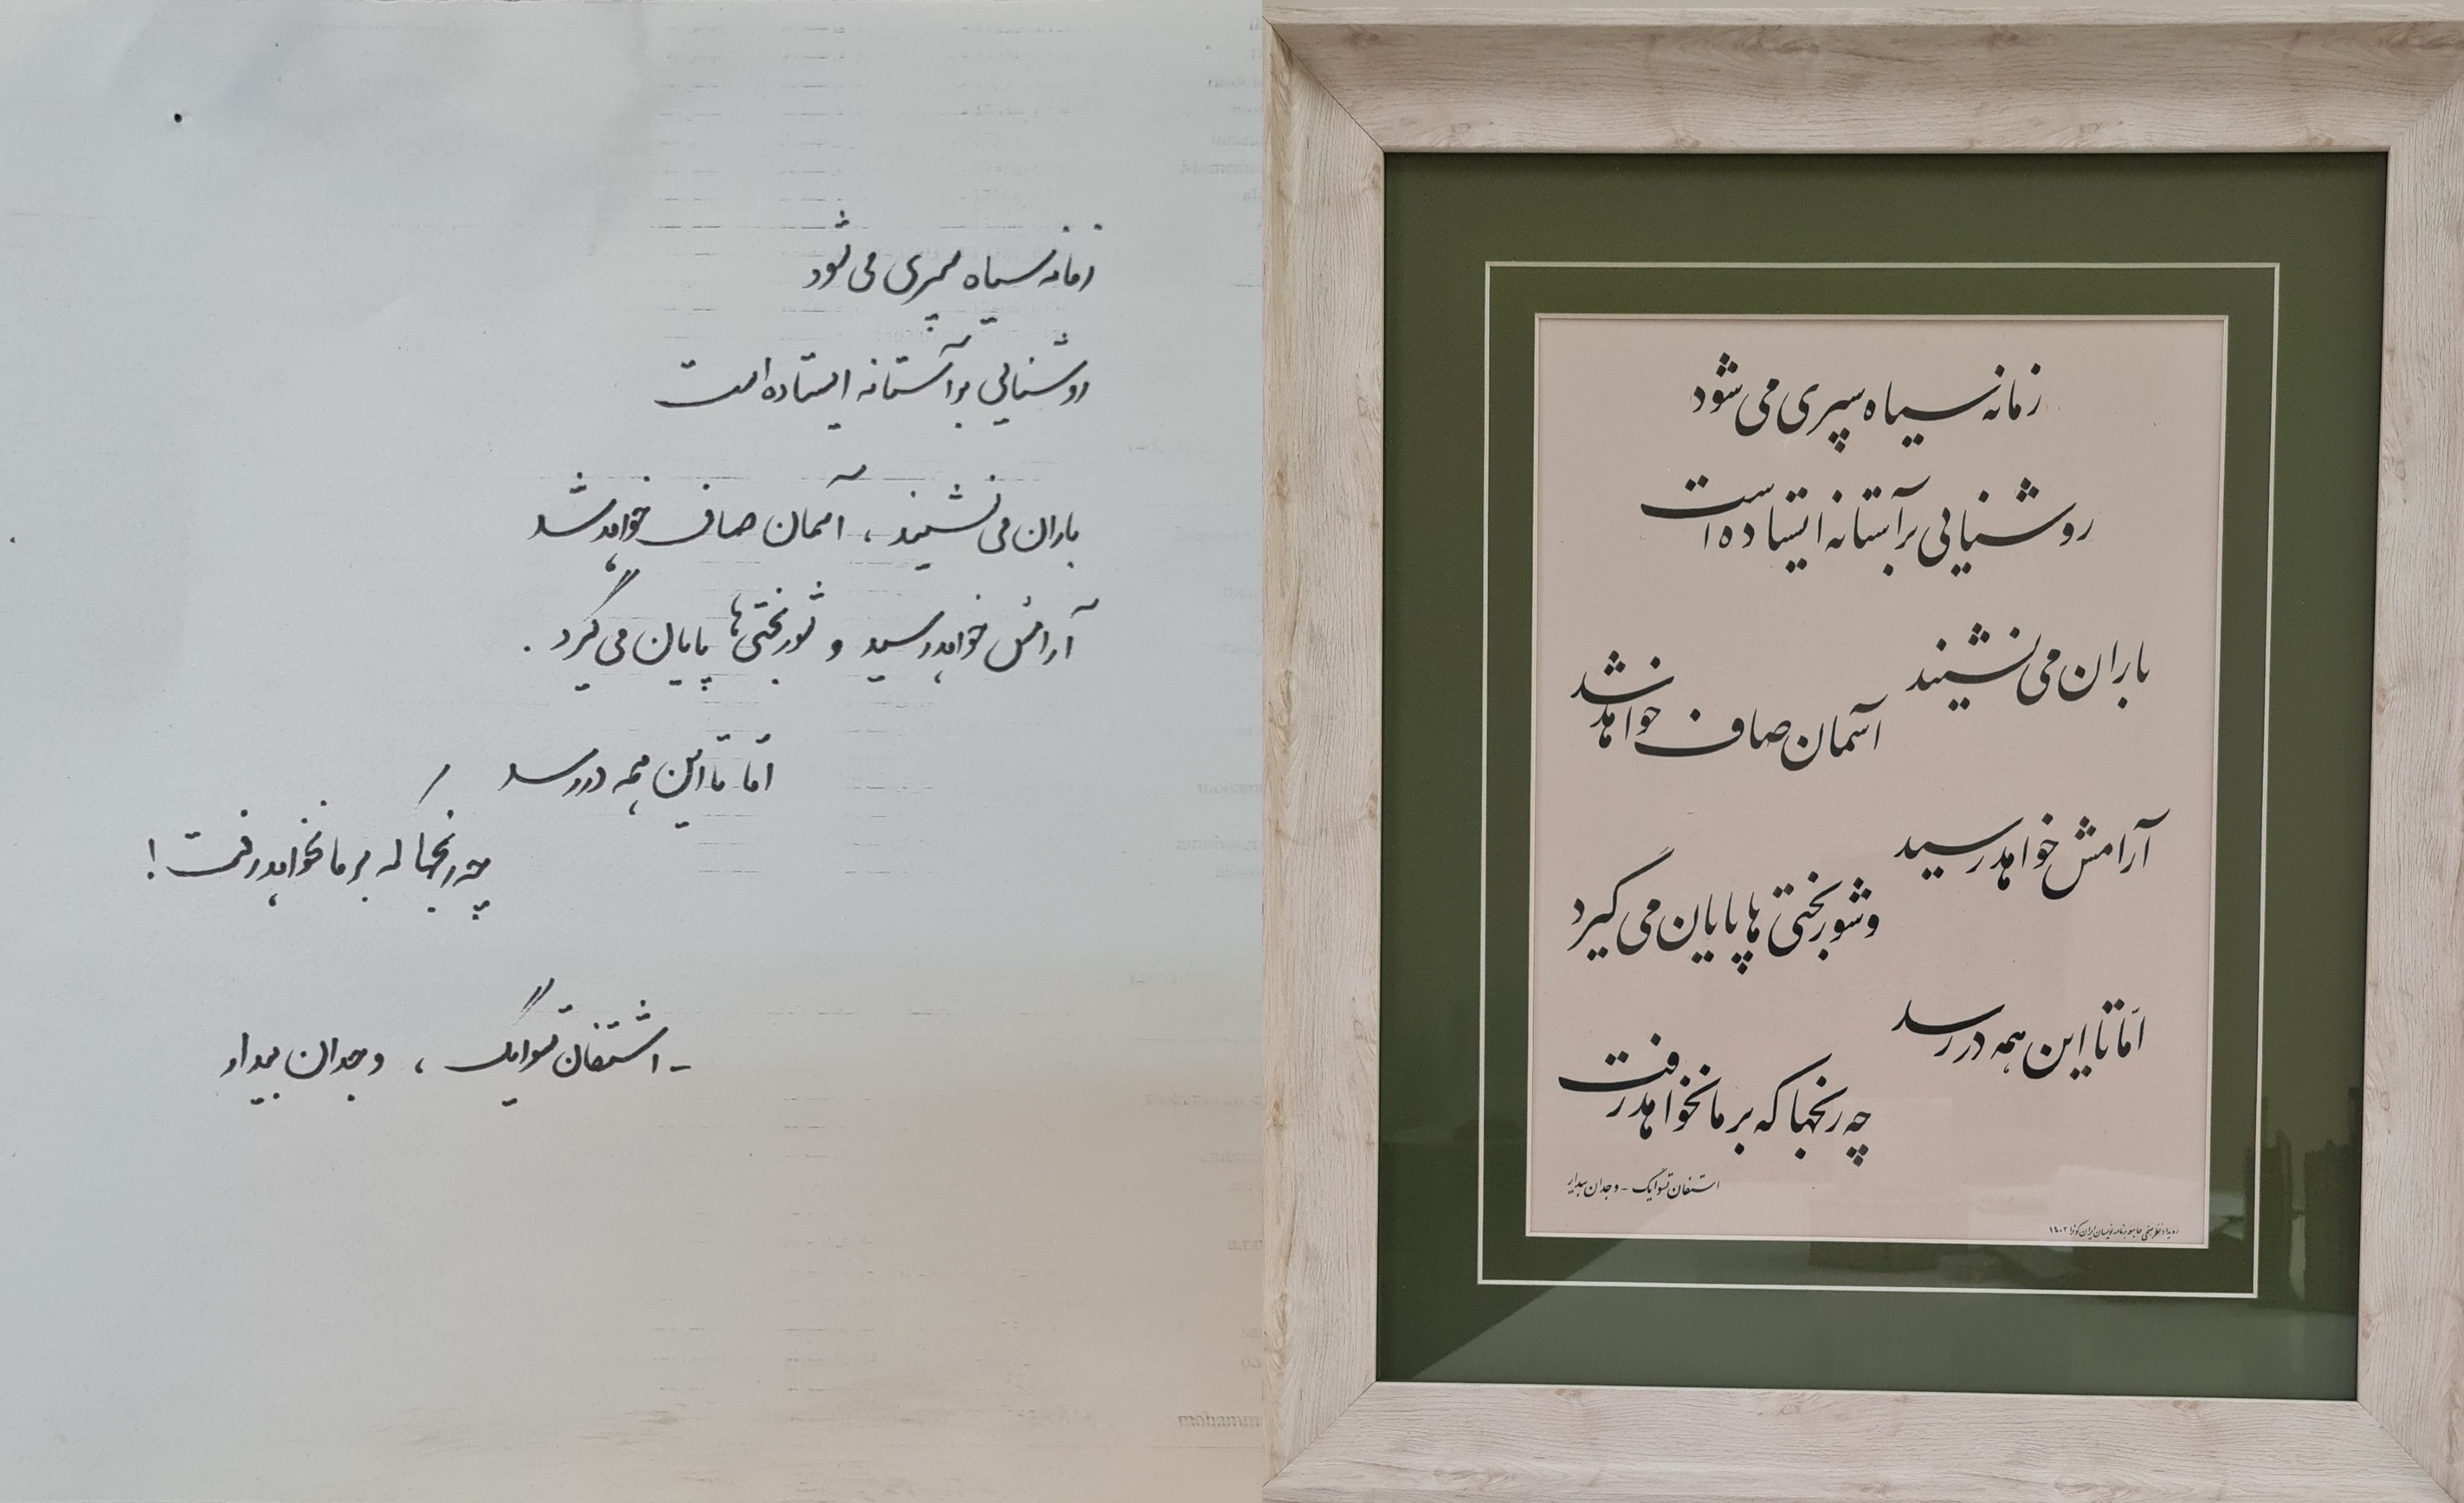 زمانه سیاه سپری می شود
روشنایی بر آستانه ایستاده است
باران می نشیند ، آسمان صاف خواهد شد
آرامش خواهد رسید و شوربختی ها پایان می گیرد .
امّا تا این همه در رسد
چه رنجها که بر ما نخواهد رفت !
- اشتفان تسوایگ ، وجدان بیدار
زمانه سیاه سپری می شود
روشنایی بر آستانه ایستاده است
باران می نشیند
آسمان صاف خواهد شد
آرامش خواهد رسید
و شوربختی ها پایان می گیرد
امّا تا این همه در رسد
چه رنجها که بر ما نخواهد رفت
اشتفان تسوایگ - وجدان بیدار
رویداد جامعه برنامه نویسان ایران ۱۴۰۲